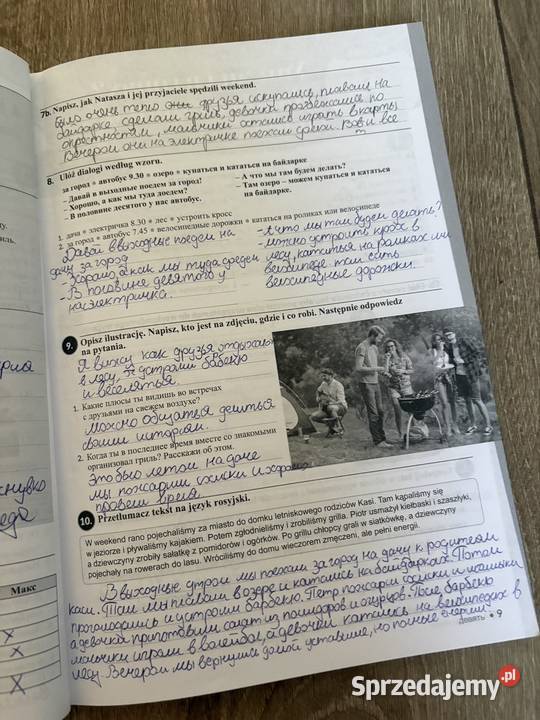 7b. Napisz, jak Natasza i jej przyjaciele spędzili weekend.
было очень тепло друзья искупались, плавали на
байдарке, сделали гриль, девочки по
окрестностям, мальчики играть в карты
Вечером они на электричке поехали
8. Ułóż dialogi według wzoru.
за город • автобус 9.30 • озеро • купаться и кататься на байдарке
– Давай в выходные поедем за город!
– Хорошо, а как мы туда поедем?
– В половине десятого у нас автобус.
– А что мы там будем делать?
– Там озеро – можем купаться и кататься
на байдарке.
1. дача • электричка 8.30 • лес • устроить кросс
2. за город • автобус 7.45 • велосипедные дорожки • кататься на роликах или велосипеде
Давай в выходные поедем на
дачу за город
- Хорошо, а как мы туда
- В половине девятого у
на электричка.
- А что мы там будем делать?
- можно устроить кросс в
лесу, кататься на роликах или
велосипеде. там
велосипедные дорожки.
9. Opisz ilustrację. Napisz, kto jest na zdjęciu, gdzie i co robi. Następnie odpowiedz
na pytania.
Я вижу как друзья отдыхают
в лесу, устроили барбекю
и веселятся.
1. Какие плюсы ты видишь во встречах
с друзьями на свежем воздухе?
можно общаться делиться
своими истории.
2. Когда ты в последнее время вместе со знакомыми
организовал гриль? Расскажи об этом.
Это было летом на даче
мы пожарили сосиски и хорошо
провели время.
10. Przetłumacz tekst na język rosyjski.
W weekend rano pojechaliśmy za miasto do domku letniskowego rodziców Kasi. Tam kąpaliśmy się
w jeziorze i pływaliśmy kajakiem. Potem zgłodnieliśmy i zrobiliśmy grilla. Piotr usmażył kiełbaski i szaszłyki,
a dziewczyny zrobiły sałatkę z pomidorów i ogórków. Po grillu chłopcy grali w siatkówkę, a dziewczyny
pojechały na rowerach do lasu. Wróciliśmy do domu wieczorem zmęczeni, ale pełni energii.
В выходные утром мы поехали за город на дачу к родителям
каси. Там мы плавали в озере и катались на байдарках. Потом
проголодались и устроили барбекю. Петр пожарил сосиски и шашлыки
а девочки приготовили салат из помидоров и огурцов. После барбекю
мальчики играли в волейбол, а девочки катались на велосипедах в
лесу. Вечером мы вернулись домой уставшие, но полные энергии.
Девять • 9
Макс
X
X
X
Sprzedajemy.pl